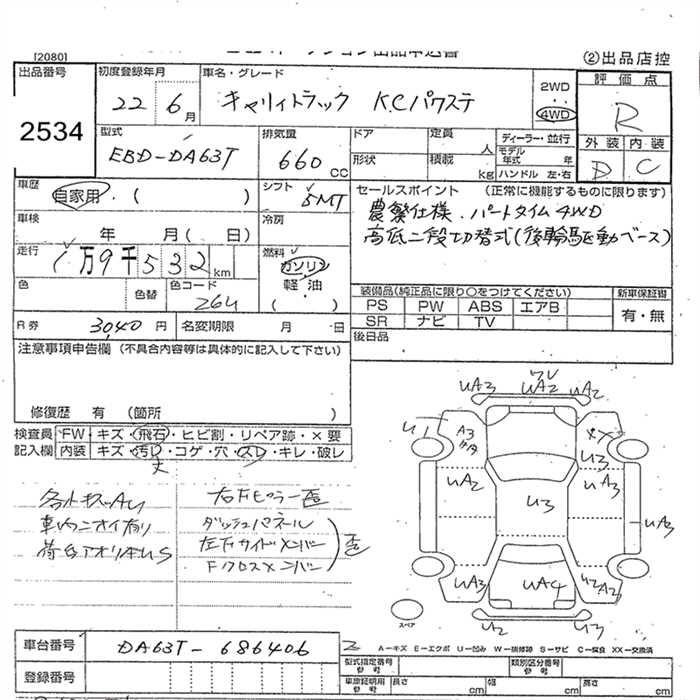 [2080]
②出品店控
出品番号
2534
初度登録年月
22年 6月
車名・グレード
キャリィトラック KCパワステ
2WD
4WD
評価点
R
外装 内装
D C
型式
EBD-DA63T
排気量
660 CC
ドア
形状
定員
人
積載
kg
ディーラー・並行
モデル年式 年
ハンドル 左・右
車歴
自家用・( )
シフト
5MT
セールスポイント (正常に機能するものに限ります)
農繁仕様.パートタイム4WD
高低二段切替式(後輪駆動ベース)
車検
年 月( 日)
冷房
走行
1万9千532km
燃料
ガソリン
軽・油
( )
色
色替
色コード
26U
装備品(純正品に限り○をつけてください)
PS PW ABS エアB
SR ナビ TV
新車保証書
有・無
R券
3040円
名変期限 月 日
後日品
注意事項申告欄 (不具合内容等は具体的に記入して下さい)
修復歴 有 (箇所 )
検査員
記入欄
FW・キズ・飛石・ヒビ割・リペア跡・×要
内装・キズ・汚れ・コゲ・穴・スレ・キレ・破レ
大
右Fピラー歪
車内ニオイ有り
ダッシュパネル
荷台アオリキU S
Fクロスメンバー
歪
UA3
UA2
UA2
U1
A3
XX
U3
UA2
U3
A3
UA3
UA3
UA4
U2A2
U2
U3
スペア
A−キズ E−エクボ U−凹み W−補修跡 S−サビ C−腐食 XX−交換済
車台番号
DA63T-686406
登録番号
型式指定番号
参考
類別区分番号
参考
車庫証明用
参考
長さ cm
幅 cm
高さ cm